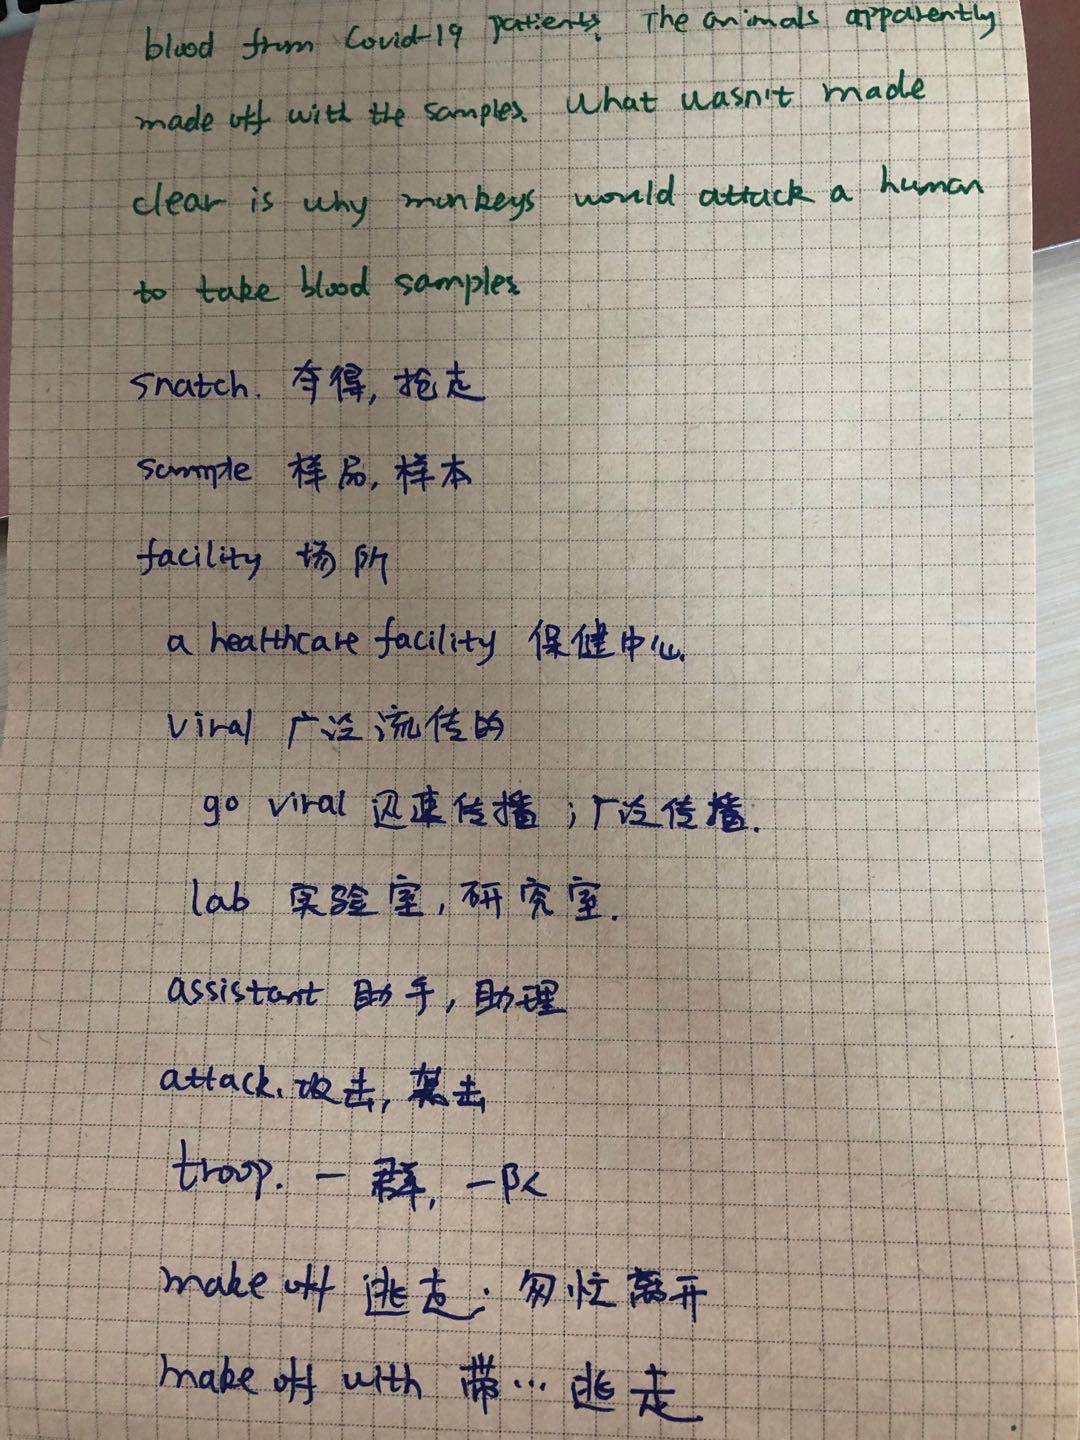 blood from Covid-19 patients. The animals apparently
made off with the samples. What wasn't made
clear is why monkeys would attack a human
to take blood samples
snatch. 夺得, 抢走
sample 样品, 样本
facility 场所
a healthcare facility 保健中心.
viral 广泛流传的
go viral 迅速传播；广泛传播.
lab 实验室, 研究室.
assistant 助手, 助理
attack. 攻击, 袭击
troop. 一群, 一队
make off 逃走; 匆忙离开
make off with 带… 逃走